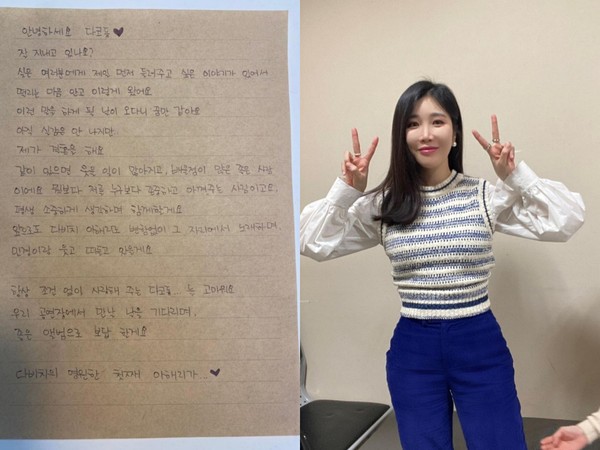 안녕하세요 다코들♥
잘 지내고 있나요?
실은 여러분에게 제일 먼저 들려주고 싶은 이야기가 있어서
떨리는 마음 안고 이렇게 왔어요
이런 말을 하게 될 날이 오다니 꿈만 같아요
아직 실감은 안 나지만
제가 결혼을 해요
같이 있으면 웃을 일이 많아지고, 배울점이 많은 좋은 사람
이에요 뭣보다 저를 누구보다 존중하고 아껴주는 사람이고요,
평생 소중하게 생각하며 함께할게요
앞으로도 다비치 이해리도 변함없이 그 자리에서 노래하며
민경이랑 웃고 떠들고 있을게요
항상 조건 없이 사랑해 주는 다코들.. 늘 고마워요
우리 공연장에서 만날 날을 기다리며,
좋은 앨범으로 보답 할게요
다비치의 영원한 첫째 이해리가.. ♥